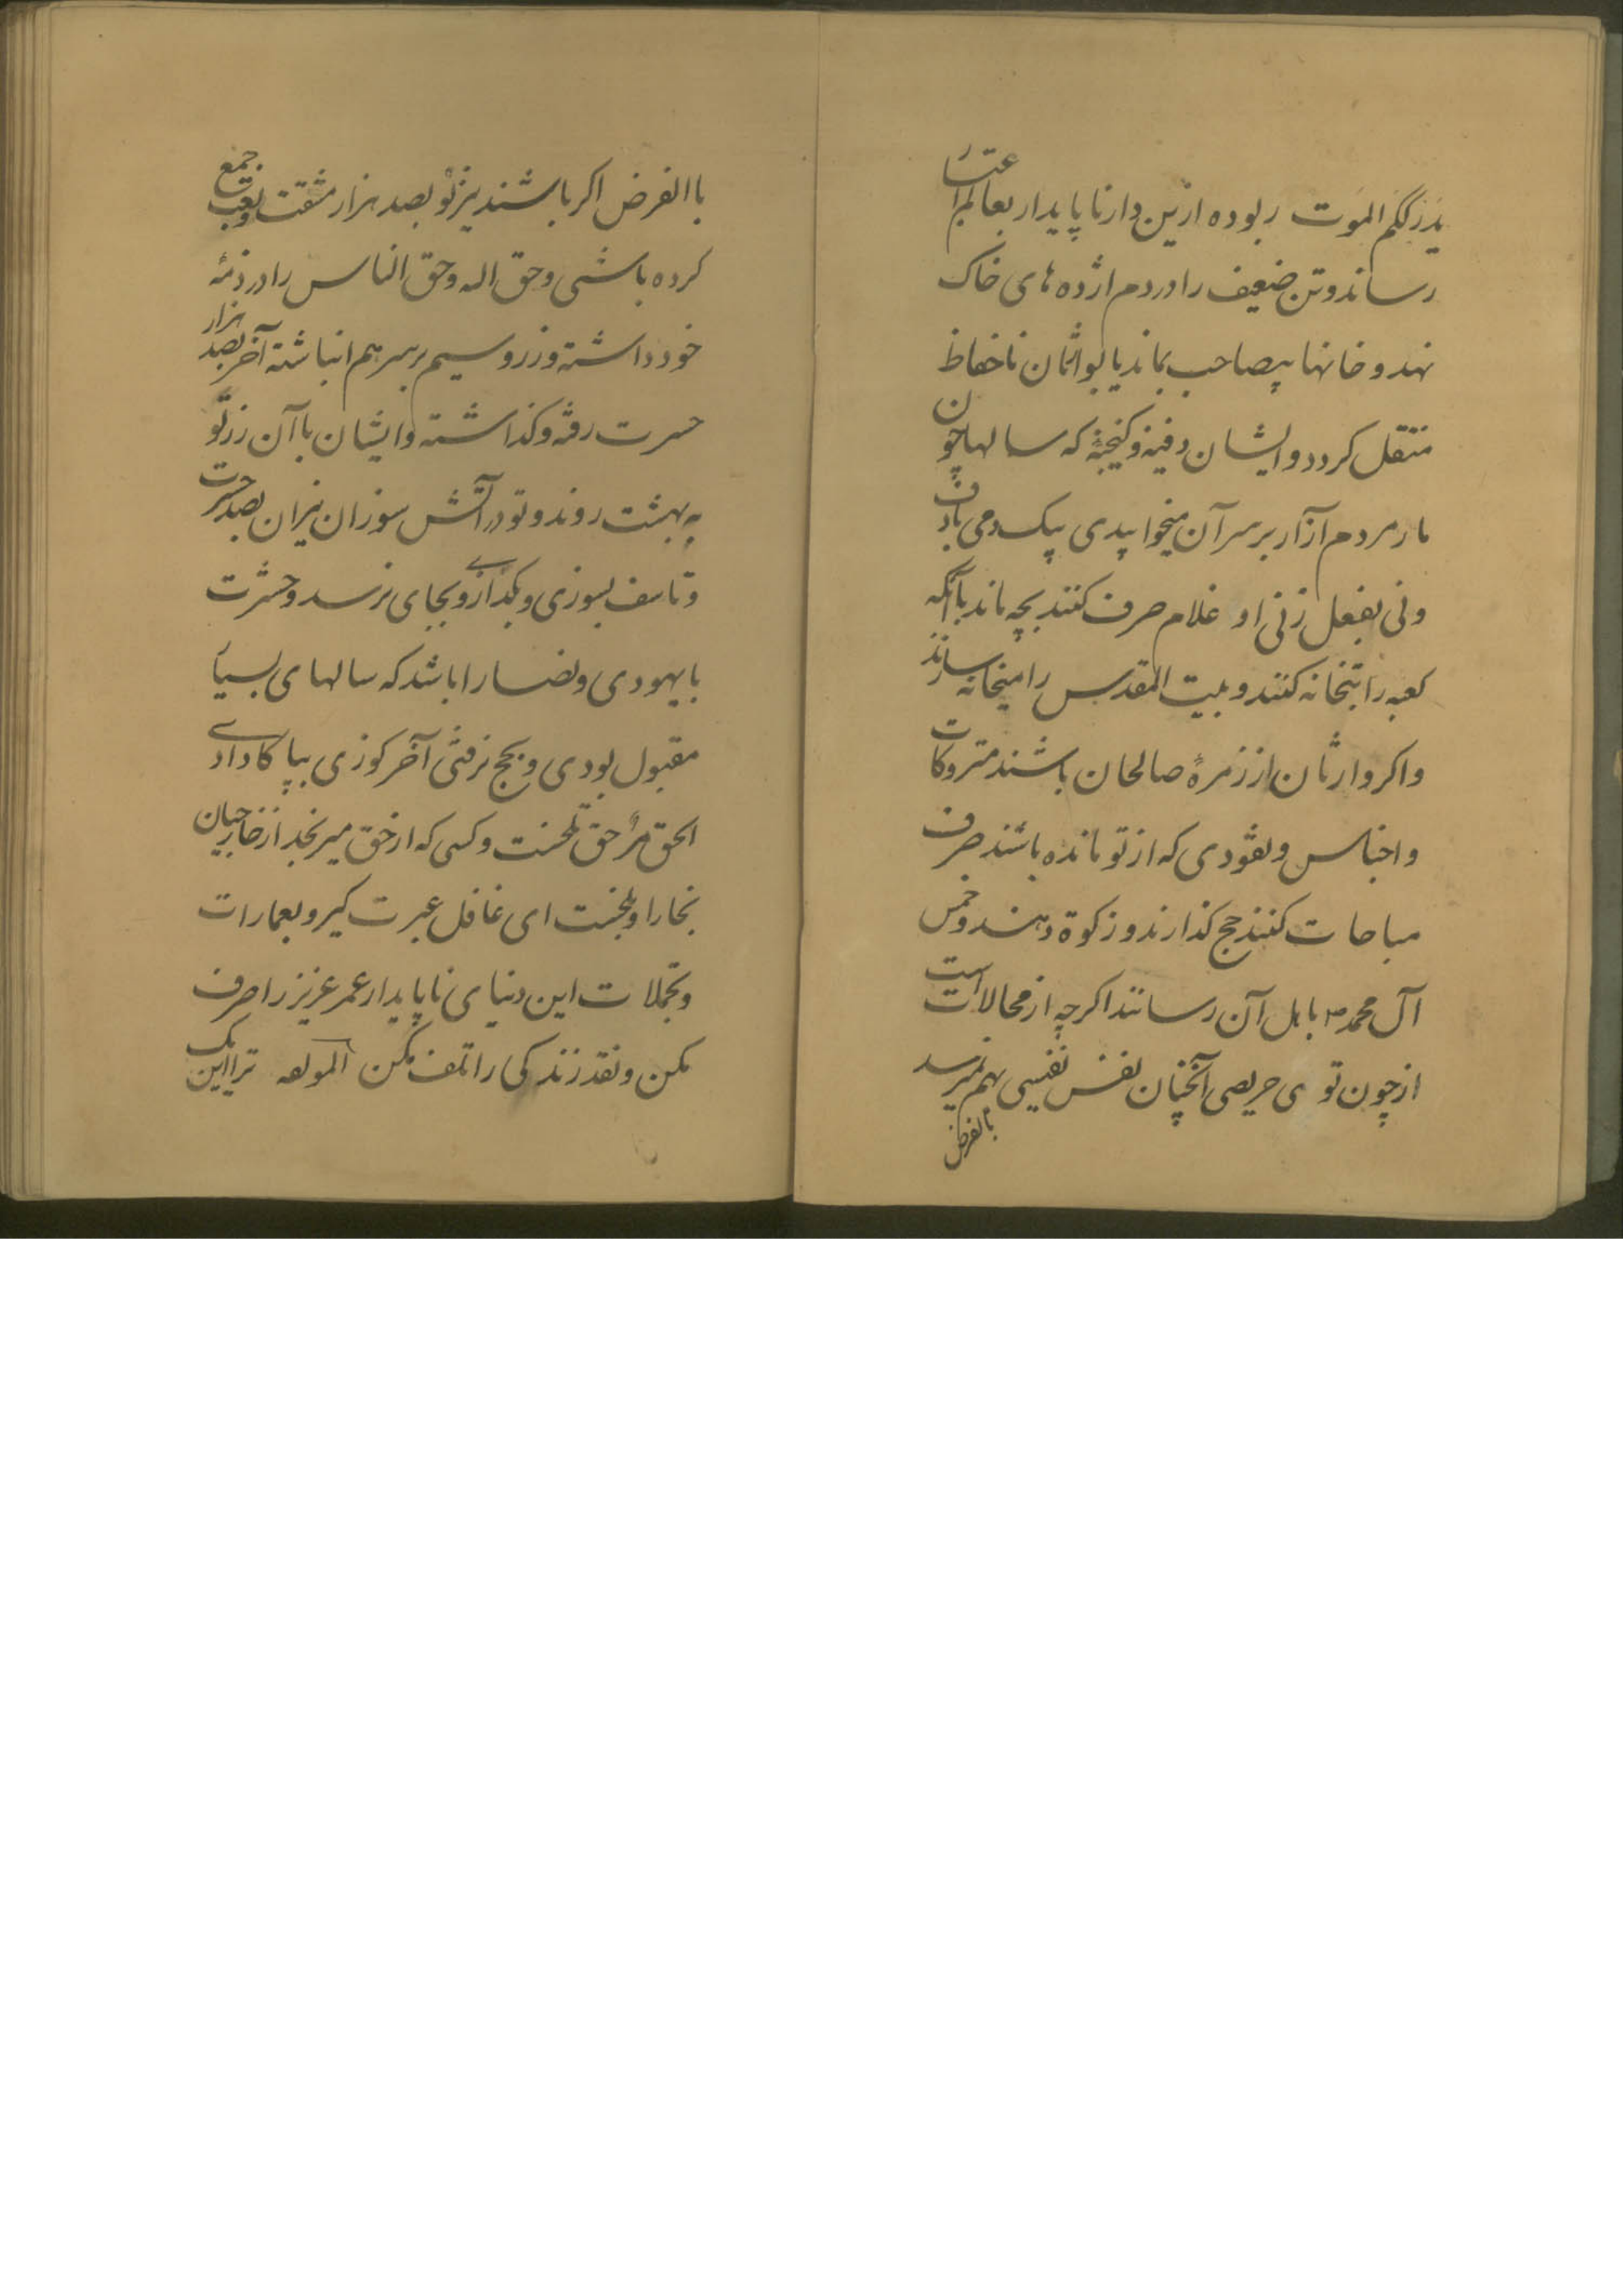 یدرککم الموت ربوده ازین دار ناپایدار بعالم اعتبار
رساند و تن ضعیف را در دم اژده های خاک
نهد و خانها بیصاحب بماند یا بوارثان ناحفاظ
منتقل کردد و ایشان دفینه و کنجینهٔ که سالها چون
مار مردم آزار بر سر آن میخوابیدی بیک دمی با دف
ونی بفعل زنی او غلام صرف کنند بچه ماند بآنکه
کعبه را بتخانه کنند و بیت المقدس را میخانه سازند
واکر وارثان از زمرهٔ صالحان باشند متروکات
واجناس ونقودی که از تو مانده باشند صرف
مباحات کنند حج کذارند و زکوة دهند و خمس
آل محمد ص باهل آن رسانند اکرچه از محالات است
از چون توی حریصی آنچنان نفس نفیسی بهم نمیرسد
بالفرض
باالفرض اکر باشند نیز تو بصد هزار مشقت وتعب جمع
کرده باشی وحق اله وحق الناس را در ذمهٔ
خود داشته وزر وسیم بر سر هم انباشته آخر بصد هزار
حسرت رفته وکذاشته وایشان باآن زر تو
به بهشت روند وتو در آتش سوزان نیران بصد حسرت
وتاسف بسوزی وبکدازی وبجای نرسد وحشرت
با یهودی ونصارا باشد که سالهای بسیار
مقبول بودی وبحج نرفتی آخر کوزی بپا کادادی
الحق مرٌ حق تلخست وکسی که از حق میرنجد از خارجیان
بخارا وبلخست ای غافل عبرت کیر وبعمارات
وتجملات این دنیای ناپایدار عمر عزیز را صرف
مکن ونقد زندکی را تلف مکن المولفه ترا این یک